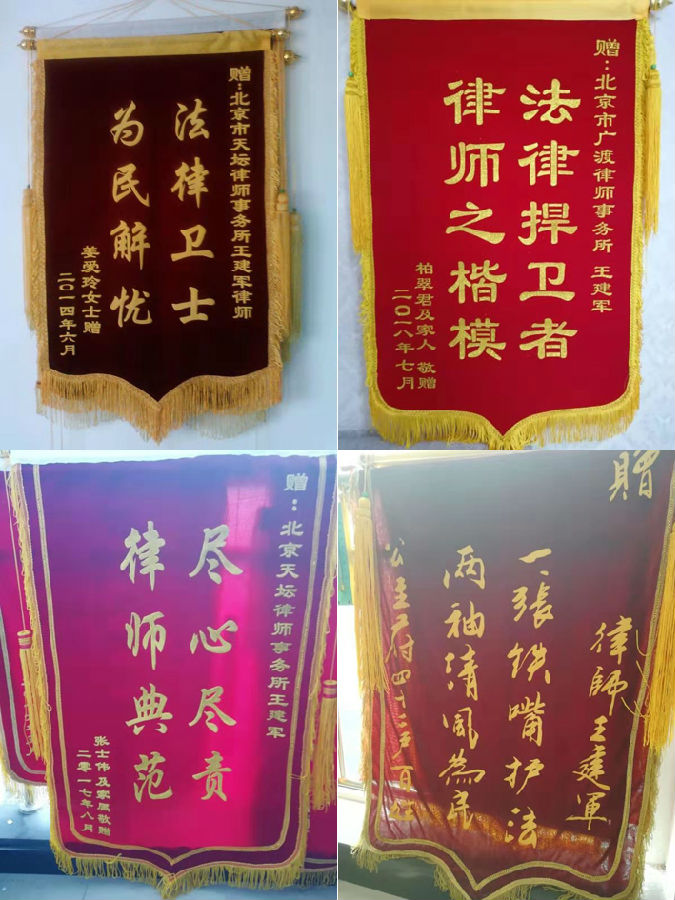 赠：北京市天坛律师事务所王建军律师
法律卫士
为民解忧
姜受玲女士赠
二〇一四年六月
赠：北京市广渡律师事务所 王建军
法律捍卫者
律师之楷模
柏翠君及家人 敬赠
二〇一八年七月
赠：北京天坛律师事务所王建军
尽心尽责
律师典范
张士伟及家属敬赠
二零一七年八月
赠
律師王建軍
一張铁嘴护法
两袖清風為民
公主府四十二户百姓